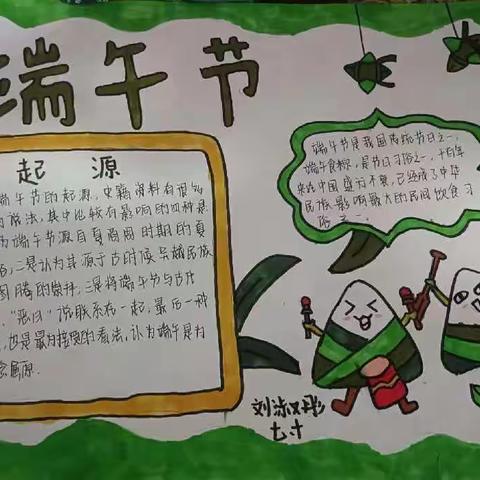 端午节
起源
端午节的起源,史籍资料有很多
的说法,其中比较有影响的四种是
为端午节源自夏商周时期的夏
二是认为其源于古时候吴越民族
图腾的祭拜,三是将端午节与古代
"恶日"说联系在一起,最后一种
也是最为接受的看法,认为端午是为
念屈原.
端午节是我国传统节日之一,
端午食粽,是节日习俗之一,千百年
来在中国盛行不衰,已经成了中华
民族影响最大的民间饮食习
俗之一.
刘淑彤
七十